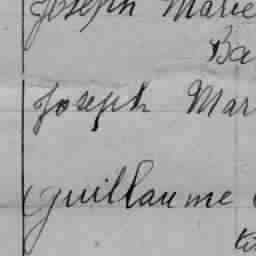 Joseph Marie
Ba
Joseph Mar
Guillaume